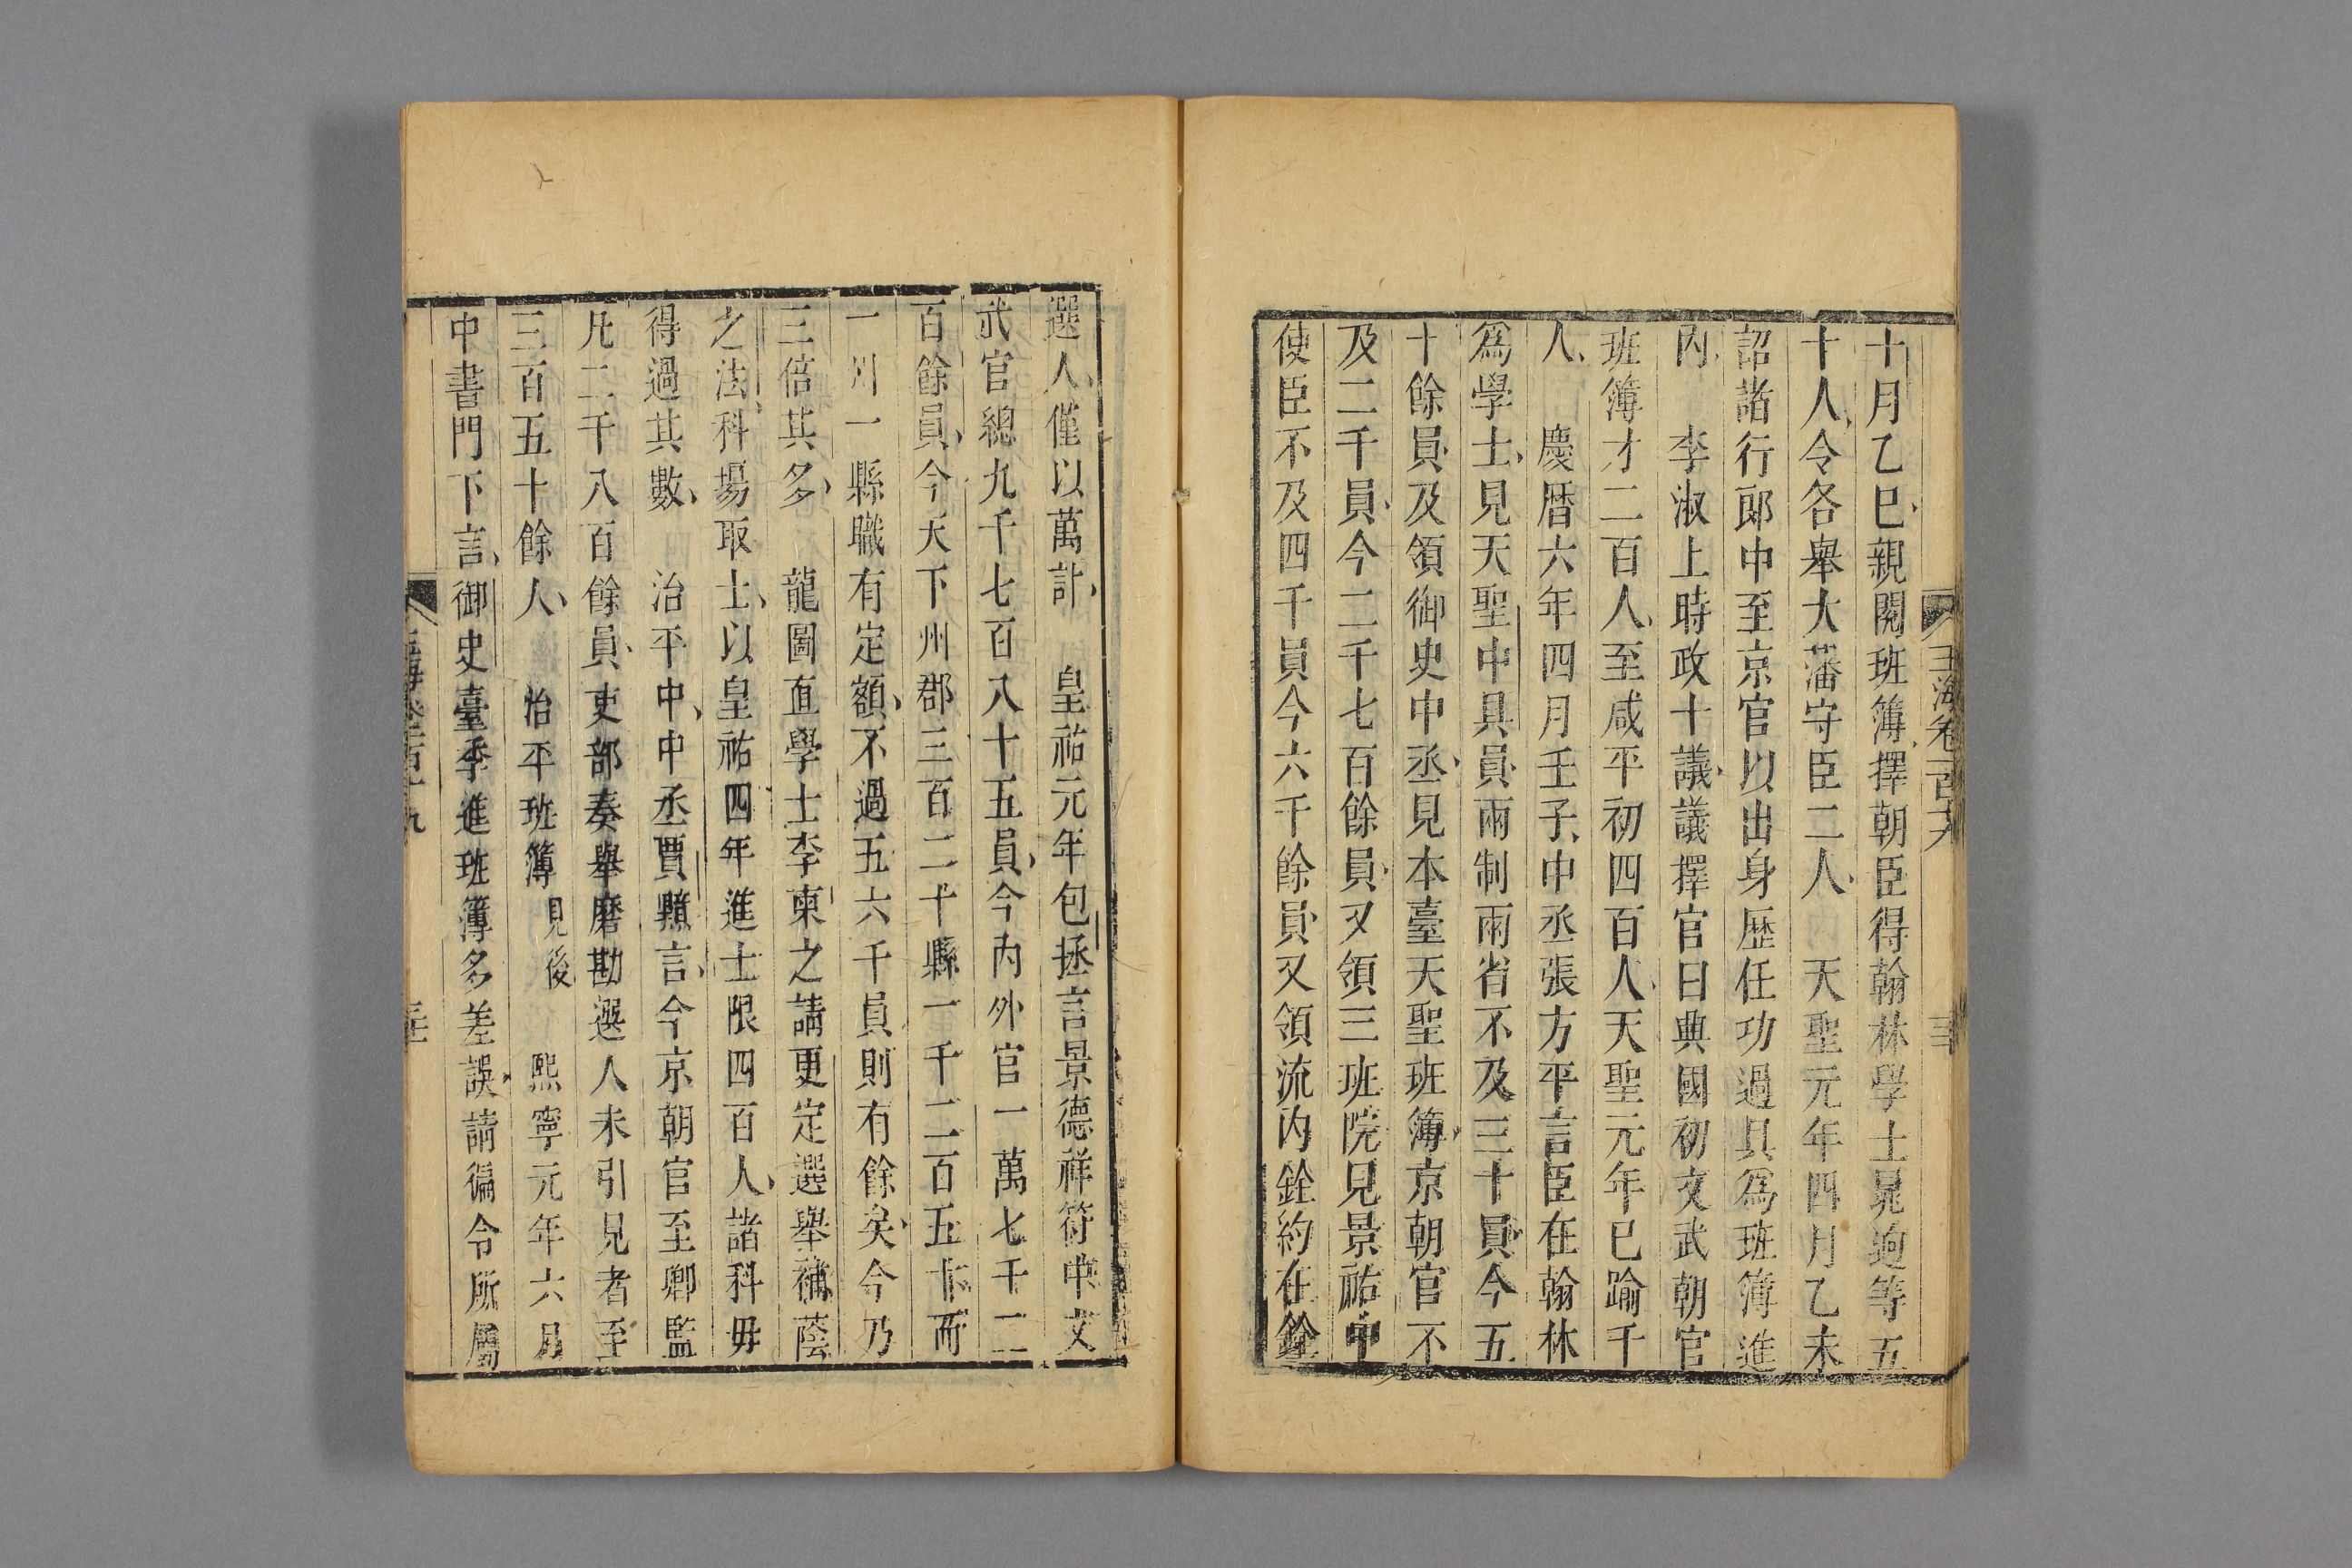 十月乙巳親閱班簿擇朝臣得翰林學士晁迥等五
十人令各舉大藩守臣二人　天聖元年四月乙未
詔諸行郎中至京官以出身歷任功過具為班簿進
內　李淑上時政十議議擇官曰典國初文武朝官
班簿才二百人至咸平初四百人天聖元年已踰千
人　慶曆六年四月壬子中丞張方平言臣在翰林
為學士見天聖中具員兩制兩省不及三十員今五
十餘員及領御史中丞見本臺天聖班簿京朝官不
及二千員今二千七百餘員又領三班院見景祐中
使臣不及四千員今六千餘員又領流內銓約在銓
選人僅以萬計　皇祐元年包拯言景德祥符中文
武官總九千七百八十五員今內外官一萬七千二
百餘員今天下州郡三百二十縣一千二百五十而
一州一縣職有定額不過五六千員則有餘矣今乃
三倍其多　龍圖直學士李柬之請更定選舉補蔭
之法科場取士以皇祐四年進士限四百人諸科毋
得過其數　治平中中丞賈黯言今京朝官至卿監
凡二千八百餘員吏部奏舉磨勘選人未引見者至
三百五十餘人　治平班簿見後　熙寧元年六月
中書門下言御史臺季進班簿多差誤請徧令所屬